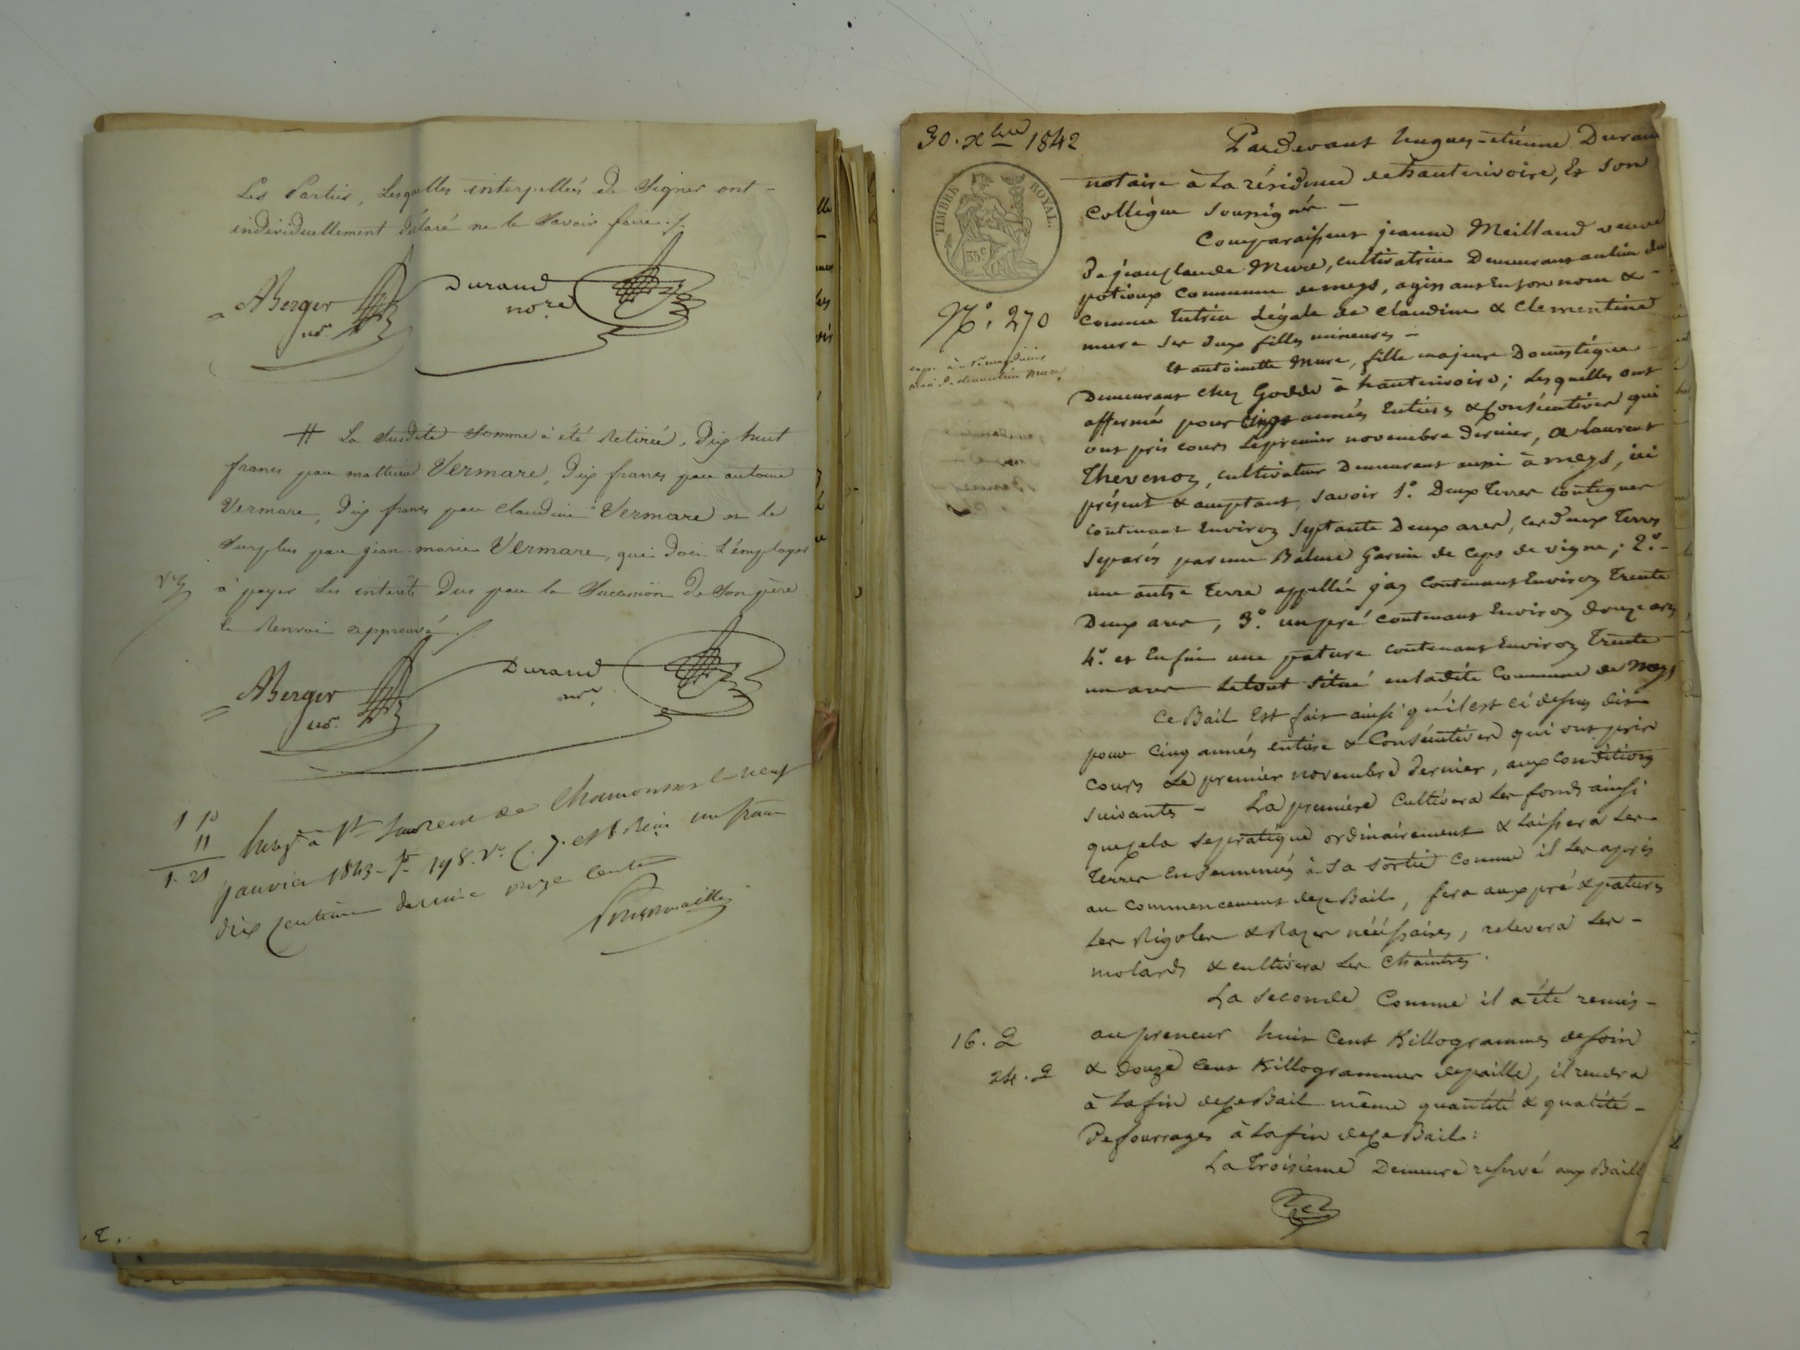 Les Parties, Lesquelles interpellées de Signer ont -
individuellement déclaré ne le Savoir faire ./.
ABerger
nre.
Durand
no.re
# La Susdite Somme a été Retirée, Dix huit
francs par mathieu Vermare, Dix francs par antoine
Vermare, Dix francs par Claudine Vermare et le
Surplus par jean-marie Vermare, qui doit L'employer
à payer Les intérêts Dus par la Succession de Son père
le Renvoi approuvé ./.
ABerger
nre.
Durand
nre.
1 10
11
1. 21
Enreg. à St Laurent de Chamousset le neuf
janvier 1843 - fo 198. Vo C. 7. et 8 Reçu un franc
dix centimes décime onze centimes
.2.
30. Xbre 1842
TIMBRE ROYAL.
35c
No. 270
Pardevant hugues-étienne Durand
notaire à La résidence de hauterivoire, Et Son
Collègue Soussignés -
Comparaissent jeanne Meilland veuve
De jean claude Mure, cultivatrice Demeurant au lieu du
potioux Commune de meys, agissant En son nom & -
Comme Tutrice Légale de Claudine & Clementine
mure Ses Deux filles mineures -
Et antoinette Mure, fille majeure Domestique -
Demeurant chez Godde à hauterivoire; Lesquelles ont
affermé pour Cinq années Entières & Consécutives qui
ont pris cours Le premier novembre dernier, a Laurent
Thevenoz, cultivateur Demeurant aussi à meys, ici
présent & acceptant, Savoir 1o. Deux Terres contigues
Contenant Environ Septante Deux ares, ces deux Terres
Séparées par une Balme Garnie de Ceps de vigne; 2o. -
une autre Terre appellée gas Contenant Environ Trente
Deux ares, 3o. un pré contenant Environ douze ares
4o. et Enfin une pature contenant Environ Trente
un ares Le tout Situé en ladite Commune de Meys
Ce Bail Est fait ainsi qu'il est ci dessus dit
pour Cinq années entière & Consécutives qui ont pris
cours Le premier novembre dernier, aux conditions
Suivantes - La première Cultivera Les fonds ainsi
que cela se pratique ordinairement & Laissera Les
Terres Ensemencées à Sa Sortie Comme il Les a pris
au Commencement de ce Bail, fera aux pré & patures
Les Rigoles & Razes nécessaires, relevera Les -
molards & cultivera Les Chaintres.
La seconde Comme il a été remis -
au preneur huit Cent Killogrammes de foin
16. Q
& Douze Cent Killogrammes de paille, il rendra
24. Q
à La fin de ce Bail même quantité & qualité -
De fourrages à La fin de ce Bail:
La Troisième Demeure reservé aux Baill